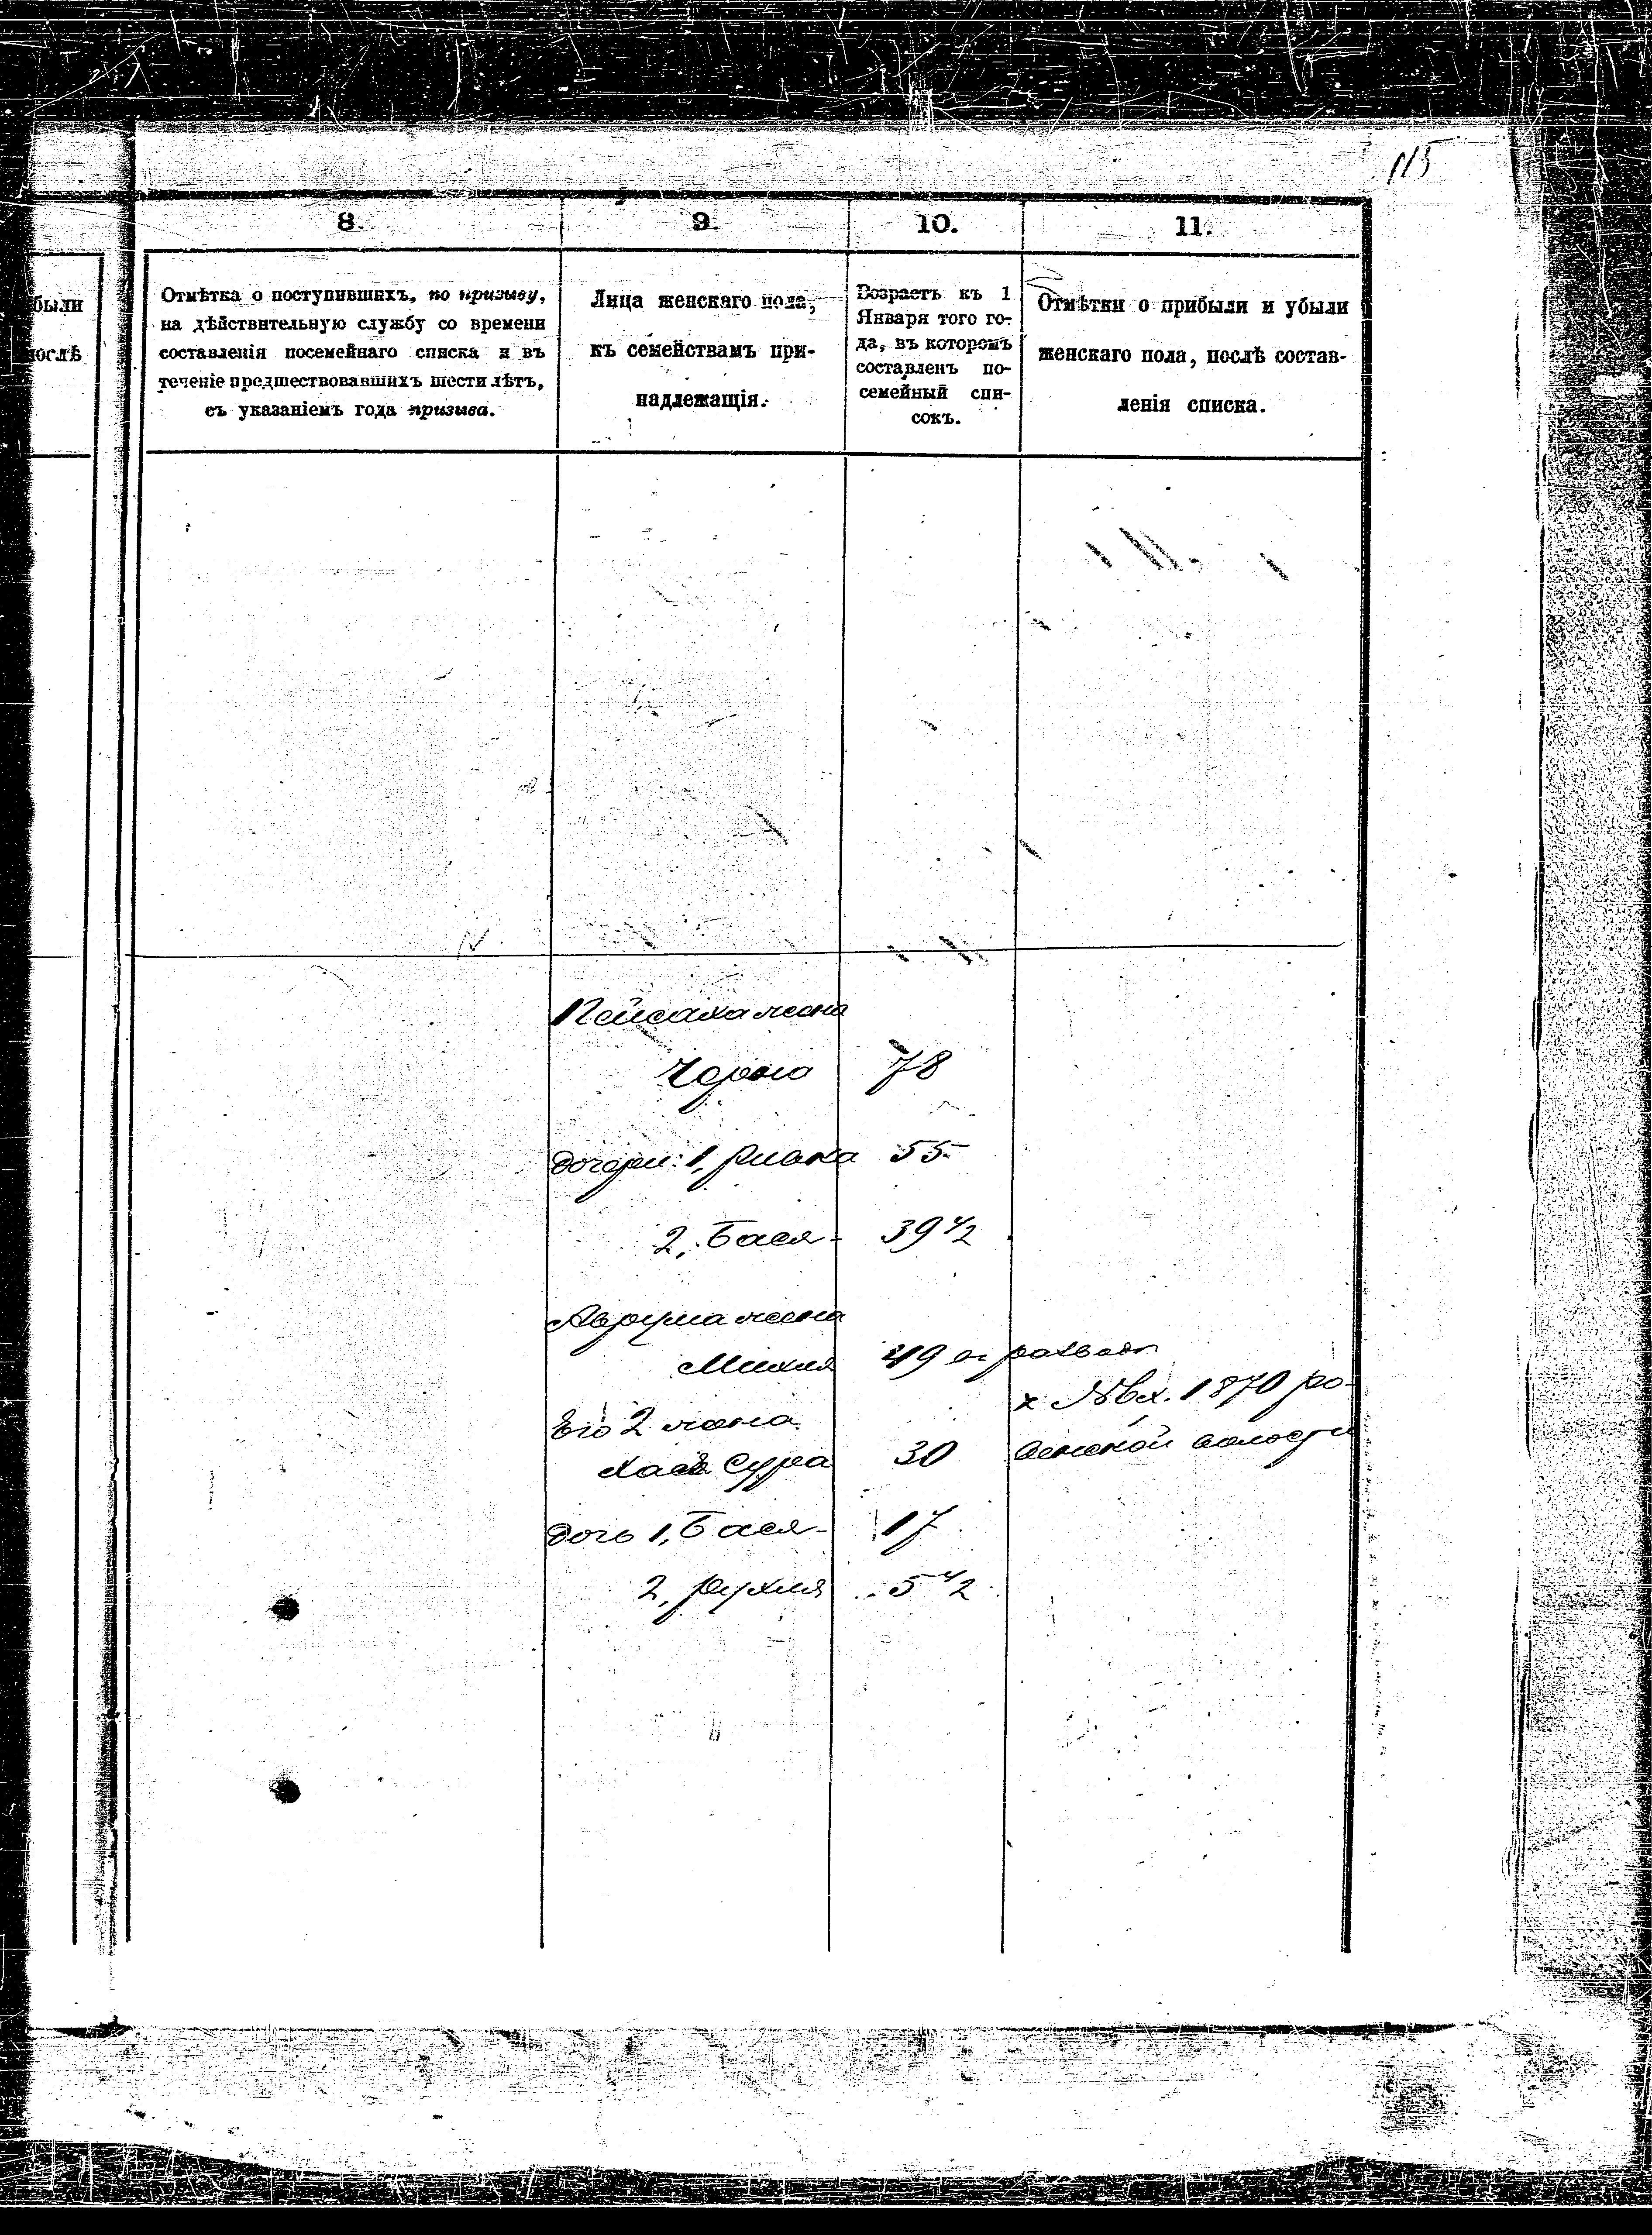 115
8.
9.
10.
11.
были
послѣ
Отмѣтка о поступившихъ, по призыву,
на дѣйствительную службу со времени
составленія посемейнаго списка и въ
теченіе предшествовавшихъ шести лѣтъ,
съ указаніемъ года призыва.
Лица женскаго пола,
къ семействамъ при-
надлежащія.
Возрастъ къ 1
Января того го-
да, въ которомъ
составленъ по-
семейный спи-
сокъ.
Отмѣтки о прибыли и убыли
женскаго пола, послѣ состав-
ленія списка.
Пейсаха жена
Чорна 78
дочери: 1, Ривка 55
2, Бася 39 1/2
Аврума жена
Михля 49 въ разводѣ
Его 2 жена
Хася Сура 30
х №вх. 1870 ро-
венской волости
дочь 1, Бася 17
2, Рухля 5 1/2